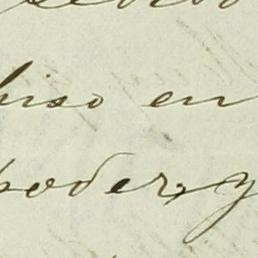 hiso en
poder, y